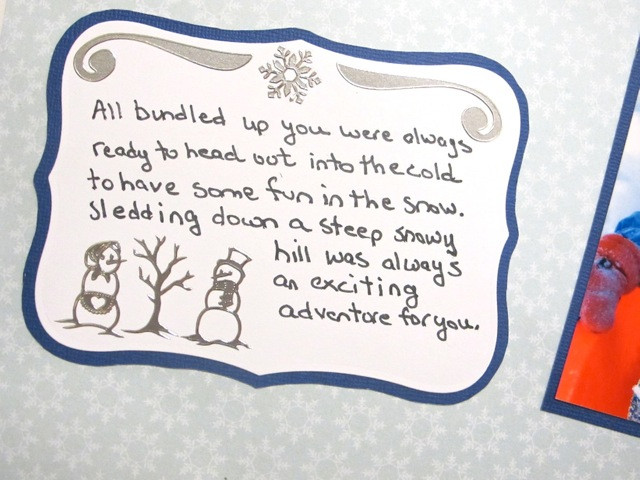 All bundled up you were always
ready to head out into the cold
to have some fun in the snow.
Sledding down a steep snowy
hill was always
an exciting
adventure for you.